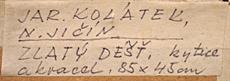 JAR. KOLÁTEK,
N. JIČÍN
ZLATÝ DEŠŤ, kytice
akracel, 85x45cm